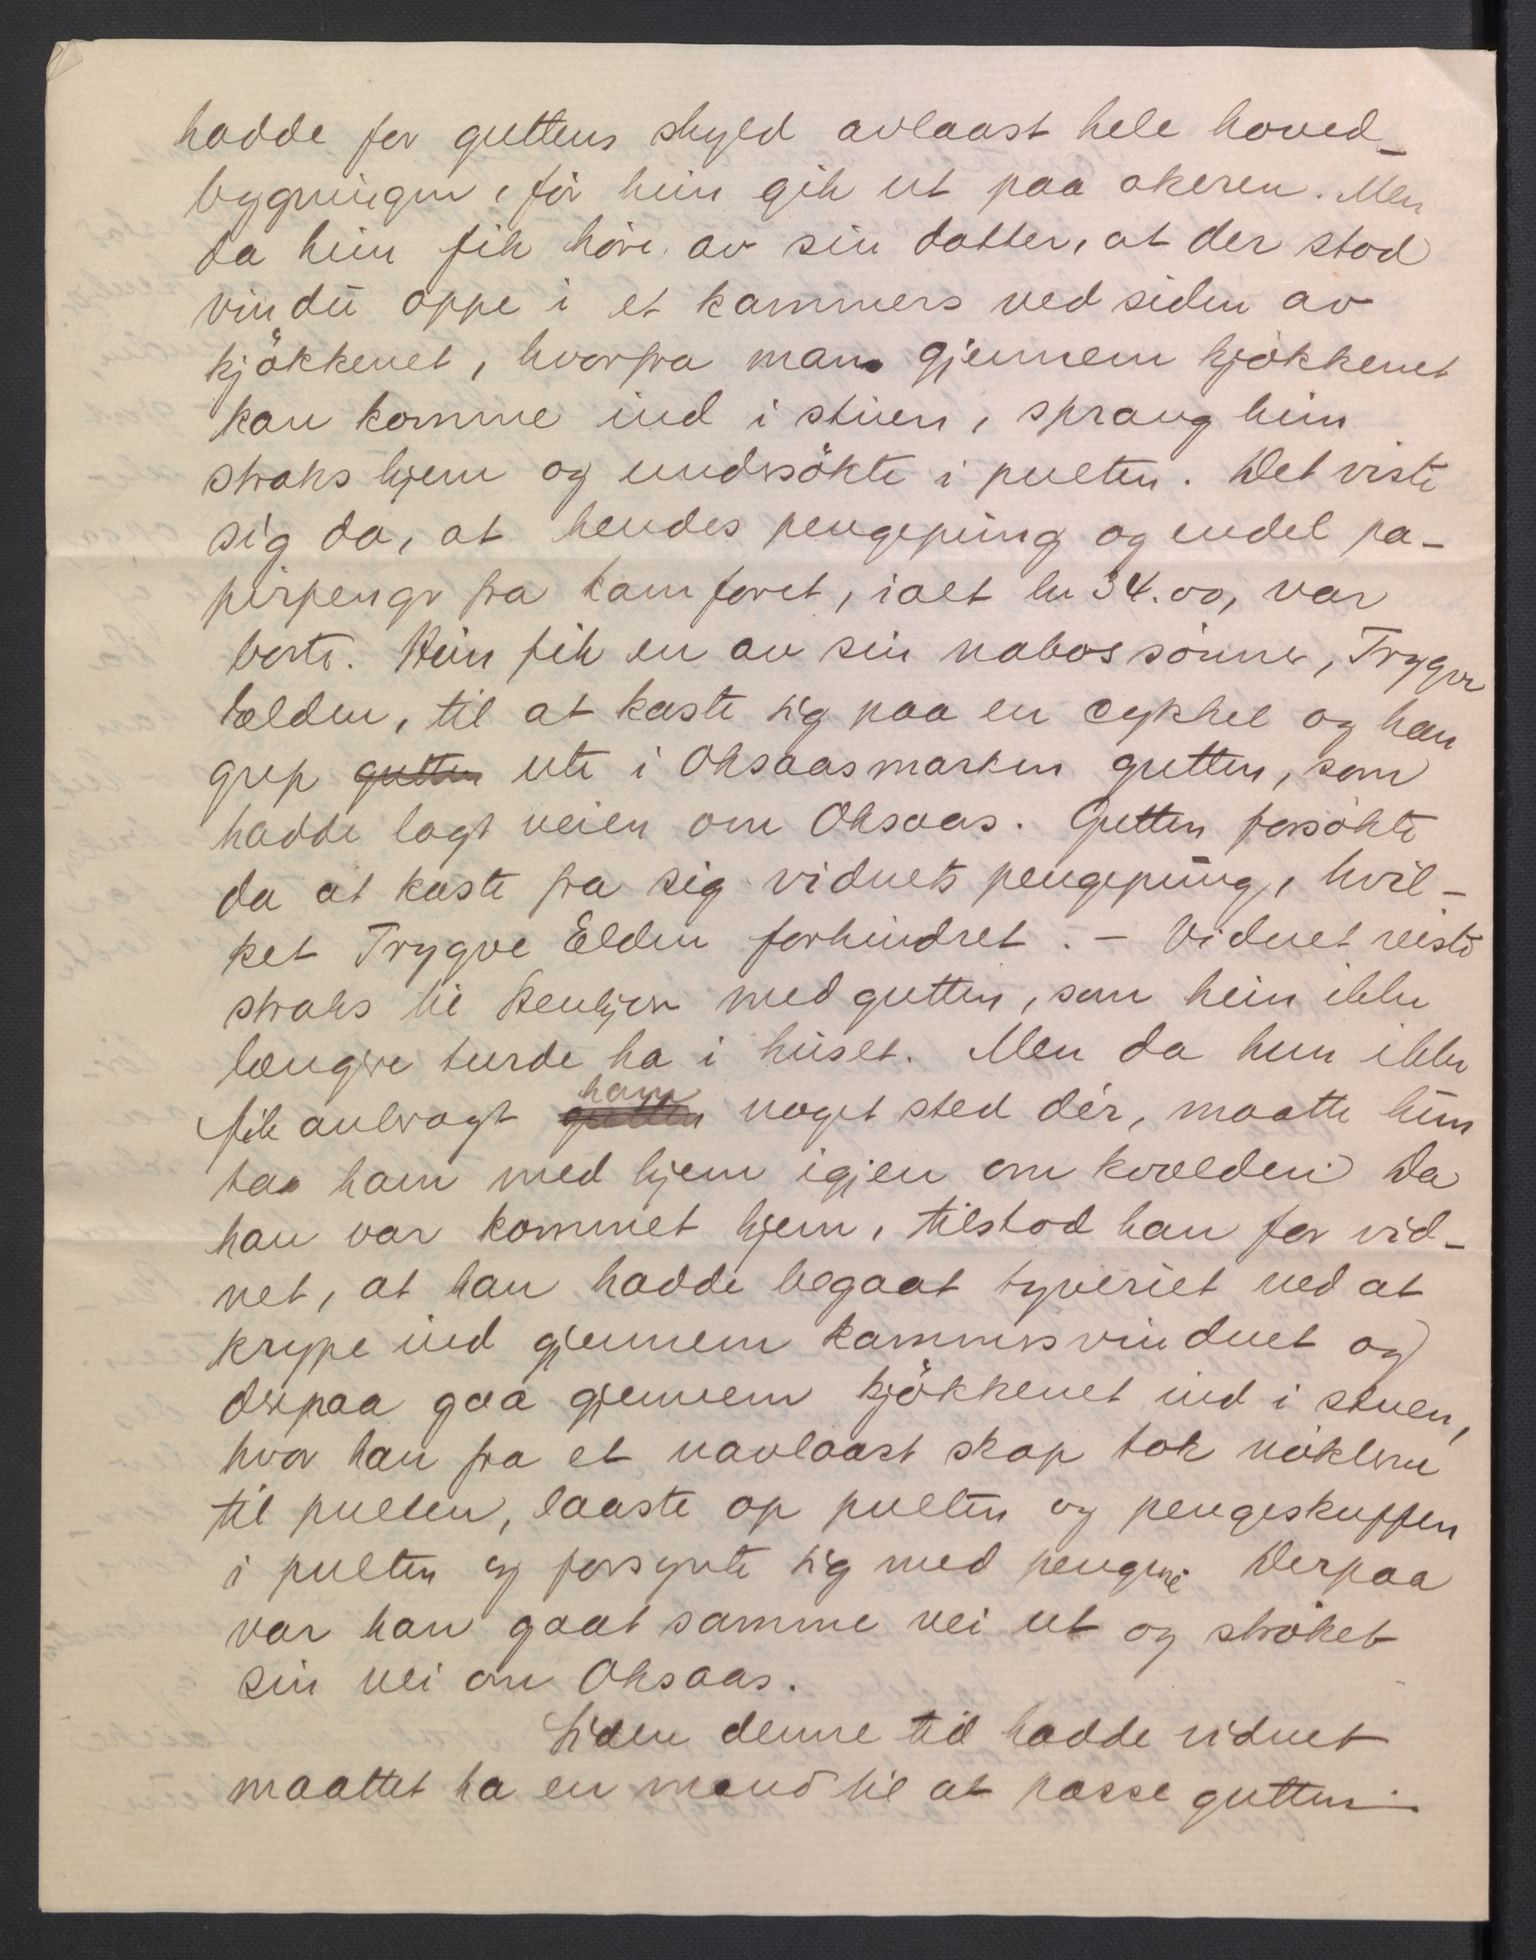 hadde for guttens skyld avlaast hele hoved-
bygningen, før hun gik ut paa akeren. Men
da hun fik høre av sin datter, at der stod
vindu oppe i et kammers ved siden av
kjøkkenet, hvorfra man gjennem kjøkkenet
kan komme ind i stuen, sprang hun
straks hjem og undersøkte i pulten. Det viste
sig da, at hendes pengepung og endel pa-
pirpenger fra kamforet, ialt kr 34.00, var
borte. Hun fik en av sin nabos sønner, Trygve
Elden, til at kaste sig paa en cykkel og han
grep gutten ute i Oksaasmarken gutten, som
hadde lagt veien om Oksaas. Gutten forsøkte
da at kaste fra sig vidnets pengepung, hvil-
ket Trygve Elden forhindret. – Vidnet reiste
straks til Stenkjær med gutten, som hun ikke
længre turde ha i huset. Men da hun ikke
fik anbragt gutten ham noget sted dér, maatte hun
ta ham med hjem igjen om kvælden. Da
han var kommet hjem, tilstod han for vid-
net, at han hadde begaat tyveriet ved at
krype ind gjennem kammersvinduet og
derpaa gaa gjennem kjøkkenet ind i stuen,
hvor han fra et uavlaast skap tok nøklerne
til pulten, laaste op pulten og pengeskuffen
i pulten og forsynte sig med pengene. Derpaa
var han gaat samme vei ut og strøket
sin vei om Oksaas.
Siden denne tid hadde vidnet
maattet ha en mand til at passe gutten.